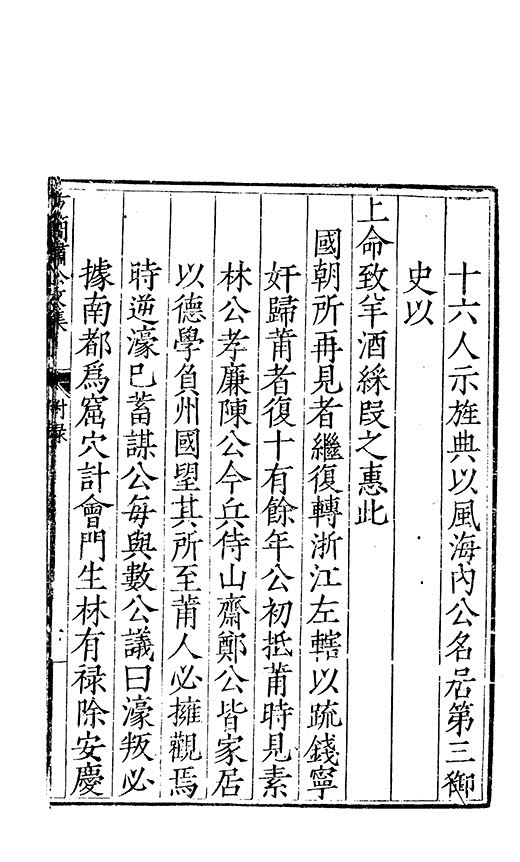 十六人示旌典以風海內公名居第三御
史以
上命致羊酒綵叚之惠此
國朝所再見者繼復轉浙江左轄以疏錢寧
奸歸莆者復十有餘年公初抵莆時見素
林公孝廉陳公今兵侍山齋鄭公皆家居
以德學負州國望其所至莆人必擁觀焉
時逆濠已蓄謀公每與數公議曰濠叛必
據南都爲窟穴計會門生林有祿除安慶
簡肅公文集
附錄